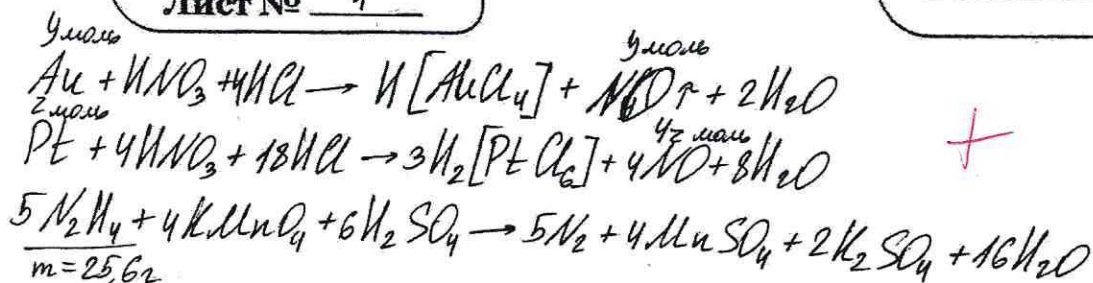 Лист № 1
y моль y моль
Au + HNO₃ + 4HCl → H[AuCl₄] + NO↑ + 2H₂O
z моль 4z моль
Pt + 4HNO₃ + 18HCl → 3H₂[PtCl₆] + 4NO + 8H₂O
5N₂H₄ + 4KMnO₄ + 6H₂SO₄ → 5N₂ + 4MnSO₄ + 2K₂SO₄ + 16H₂O
m = 25,6г